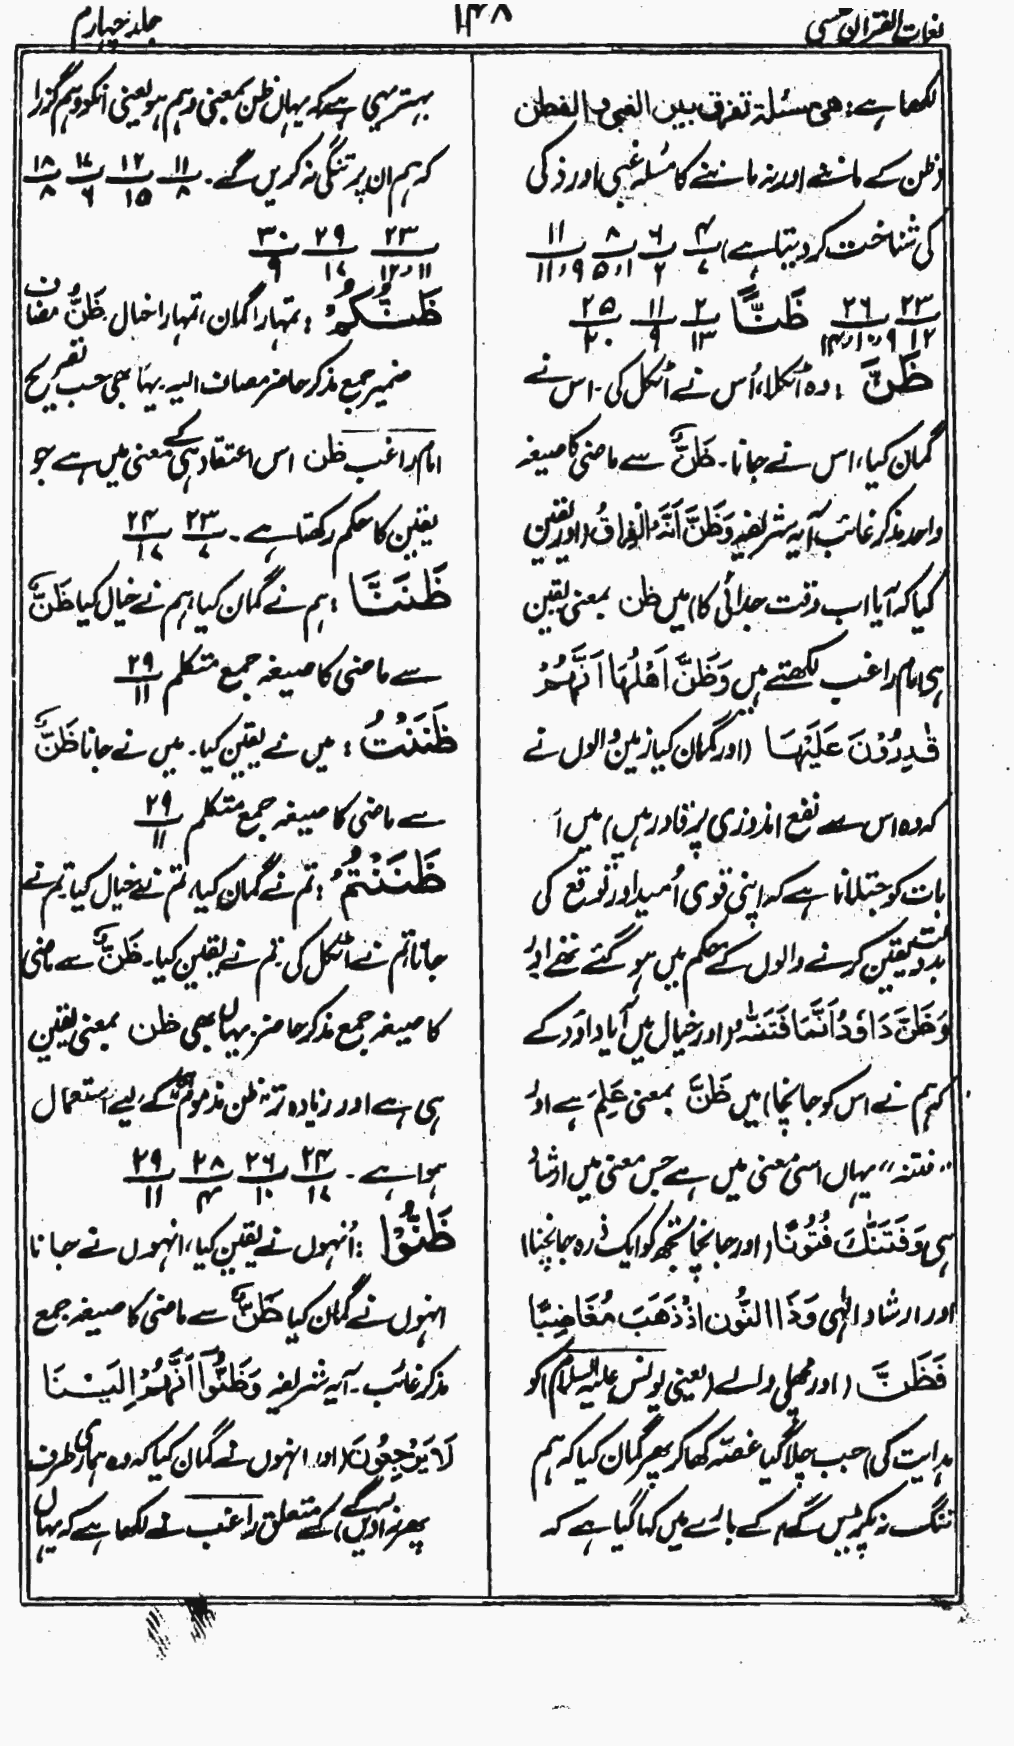 لغات القرآن
۱۴۷
جلد چہارم
لکھا ہے: هی مسئلة تفرق بین الغبی و الفطن
وظن کے ماننے اور نہ ماننے کا مسئلہ غبی اور ذکی
کی شناخت کر دیتا ہے) ۴/۷ ۶/۲ ۸/۱،۵ ۱۱/۹،۱۱
۲۳/۱۲ ۲۶/۹،۱۰،۱۴ ظَنًّا ۲/۱۳ ۱۱/۹ ۲۵/۲۰
ظَنَّ: وہ اٹکلا، اُس نے اٹکل کی۔ اس نے
گمان کیا، اس نے جانا۔ ظَنٌّ سے ماضی کا صیغہ
واحد مذکر غائب آیہ شریفہ وَظَنَّ اَنَّهُ الْفِرَاقُ (اور یقین
کیا کہ آیا اب وقت جدائی کا) میں ظن بمعنی یقین
ہی امام راغب لکھتے ہیں وَظَنَّ اَهْلُهَا اَنَّهُمْ
قٰدِرُوْنَ عَلَيْهَا (اور گمان کیا زمین والوں نے
کہ وہ اس سے نفع اندوزی پر قادر ہیں) میں اَ
بات کو جتلانا ہے کہ اپنی قوی اُمید اور توقع کی
بدولت یقین کرنے والوں کے حکم میں ہو گئے تھے اور
وَظَنَّ دَاوٗدُ اَنَّمَا فَتَنّٰهُ (اور خیال میں آیا داؤد کے
کہ ہم نے اس کو جانچا) میں ظَنَّ بمعنی عَلِمَ ہے اور
"فتنہ" یہاں اسی معنی میں ہے جس معنی میں ارشاد
ہی وَفَتَنّٰكَ فُتُوْنًا (اور جانچا تجھ کو ایک ذرہ جانچنا)
اور ارشاد الٰہی وَذَا النُّوْنِ اِذْ ذَهَبَ مُغَاضِبًا
فَظَنَّ (اور مچھلی والے (یعنی یونس علیہ السلام) کو
ہدایت کی) جب چلا گیا غصّہ کھا کر پھر گمان کیا کہ ہم
تنگ نہ پکڑیں گے) کے بارے میں کہا گیا ہے کہ
بہتر یہی ہے کہ یہاں ظن بمعنی وہم ہو یعنی انکو وہم گزرا
کہ ہم ان پر تنگی نہ کریں گے۔ ۱۱/۸ ۱۲/۱۵ ۱۷/۶ ۱۸/۸
۲۳/۱۱،۱۲ ۲۹/۱۷ ۳۰/۹
ظَنُّكُمْ: تمہارا گمان، تمہارا خیال۔ ظَنُّ مضاف
ضمیر جمع مذکر حاضر مضاف الیہ۔ یہاں بھی حسب تصریح
امام راغب ظن اس اعتقاد ہی کے معنی میں ہے جو
یقین کا حکم رکھتا ہے۔ ۲۳/۷ ۲۴/۱۷
ظَنَنَّا: ہم نے گمان کیا، ہم نے خیال کیا ظَنٌّ
سے ماضی کا صیغہ جمع متکلم ۲۹/۱۱
ظَنَنْتُ: میں نے یقین کیا۔ میں نے جانا ظَنٌّ
سے ماضی کا صیغہ جمع متکلم ۲۹/۱۱
ظَنَنْتُمْ: تم نے گمان کیا، تم نے خیال کیا تم نے
جانا تم نے اٹکل کی۔ تم نے یقین کیا۔ ظَنٌّ سے ماضی
کا صیغہ جمع مذکر حاضر۔ یہاں بھی ظن بمعنی یقین
ہی ہے اور زیادہ تر ظن مذموم کے لیے استعمال
ہوا ہے۔ ۲۴/۱۷ ۲۶/۱۰ ۲۸/۴ ۲۹/۱۱
ظَنُّوْا: اُنہوں نے یقین کیا، انہوں نے جانا
انہوں نے گمان کیا ظَنٌّ سے ماضی کا صیغہ جمع
مذکر غائب۔ آیہ شریفہ وَظَنُّوْا اَنَّهُمْ اِلَيْنَا
لَا يُرْجَعُوْنَ (اور انہوں نے گمان کیا کہ وہ ہماری طرف
پھر نہ آئیں گے) کے متعلق راغب نے لکھا ہے کہ یہاں